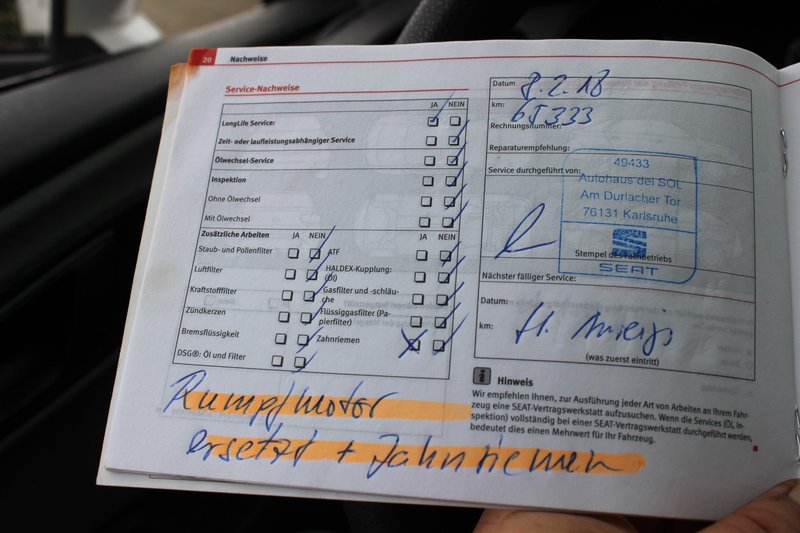 20 Nachweise
Service-Nachweise
JA NEIN
LongLife Service:
Zeit- oder laufleistungsabhängiger Service
Ölwechsel-Service
Inspektion
Ohne Ölwechsel
Mit Ölwechsel
Zusätzliche Arbeiten JA NEIN JA NEIN
Staub- und Pollenfilter ATF
Luftfilter HALDEX-Kupplung: (Öl)
Kraftstofffilter Gasfilter und -schläuche
Zündkerzen Flüssiggasfilter (Papierfilter)
Bremsflüssigkeit Zahnriemen
DSG®: Öl und Filter
Rumpfmotor
ersetzt + Zahnriemen
Datum 8.2.18
km: 65333
Rechnungsnummer:
Reparaturempfehlung:
Service durchgeführt von:
49433
Autohaus del SOL
Am Durlacher Tor
76131 Karlsruhe
SEAT
Stempel des Fachbetriebs
Nächster fälliger Service:
Datum:
km:
(was zuerst eintritt)
Hinweis
Wir empfehlen Ihnen, zur Ausführung jeder Art von Arbeiten an Ihrem Fahr-
zeug eine SEAT-Vertragswerkstatt aufzusuchen. Wenn die Services (Öl, In-
spektion) vollständig bei einer SEAT-Vertragswerkstatt durchgeführt werden,
bedeutet dies einen Mehrwert für Ihr Fahrzeug.